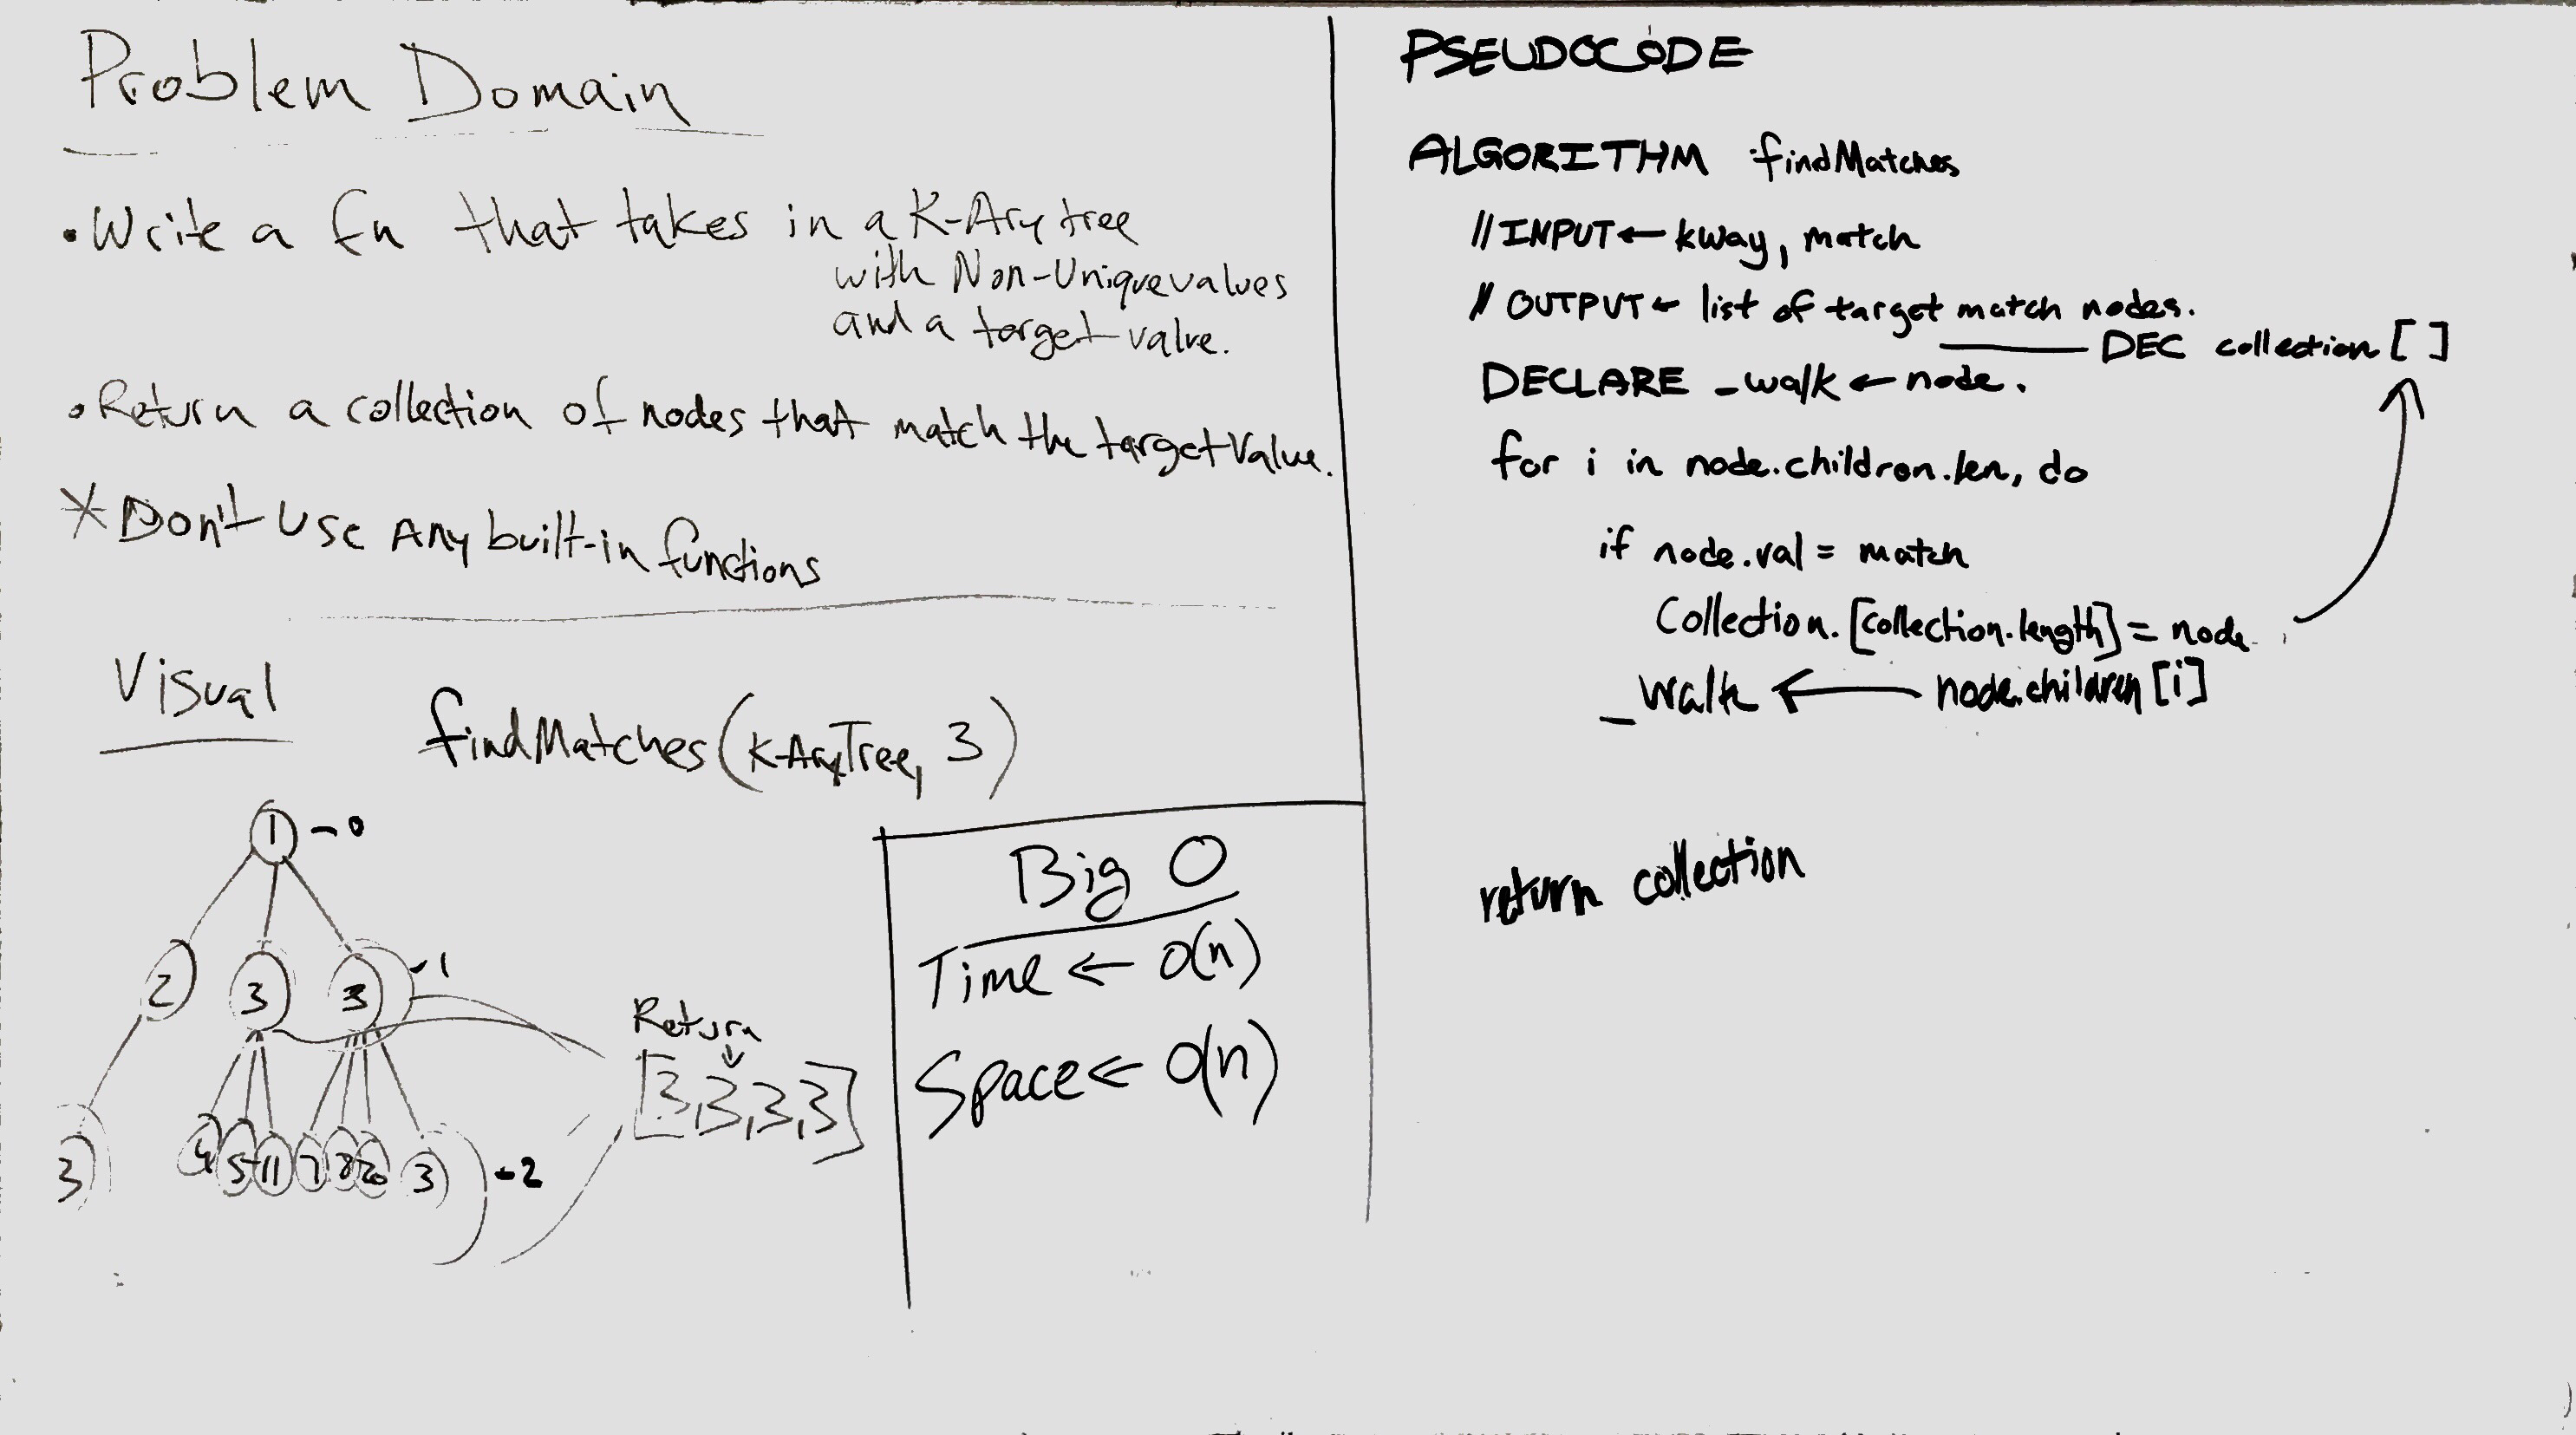 Problem Domain
• Write a fn that takes in a K-Ary tree
with Non-Unique values
and a target value.
• Return a collection of nodes that match the target Value.
* Don't Use Any built-in functions
Visual
findMatches(K-AryTree, 3)
1 - 0
2 3 3 - 1
3 4 5 11 7 8 20 3 - 2
Return
↓
[3,3,3,3]
Big O
Time ← O(n)
Space ← O(n)
PSEUDOCODE
ALGORITHM findMatches
// INPUT ← kway, match
// OUTPUT ← list of target match nodes.
DEC collection [ ]
DECLARE _walk ← node.
for i in node.children.len, do
if node.val = match
Collection.[collection.length] = node
_walk ← node.children [i]
return collection